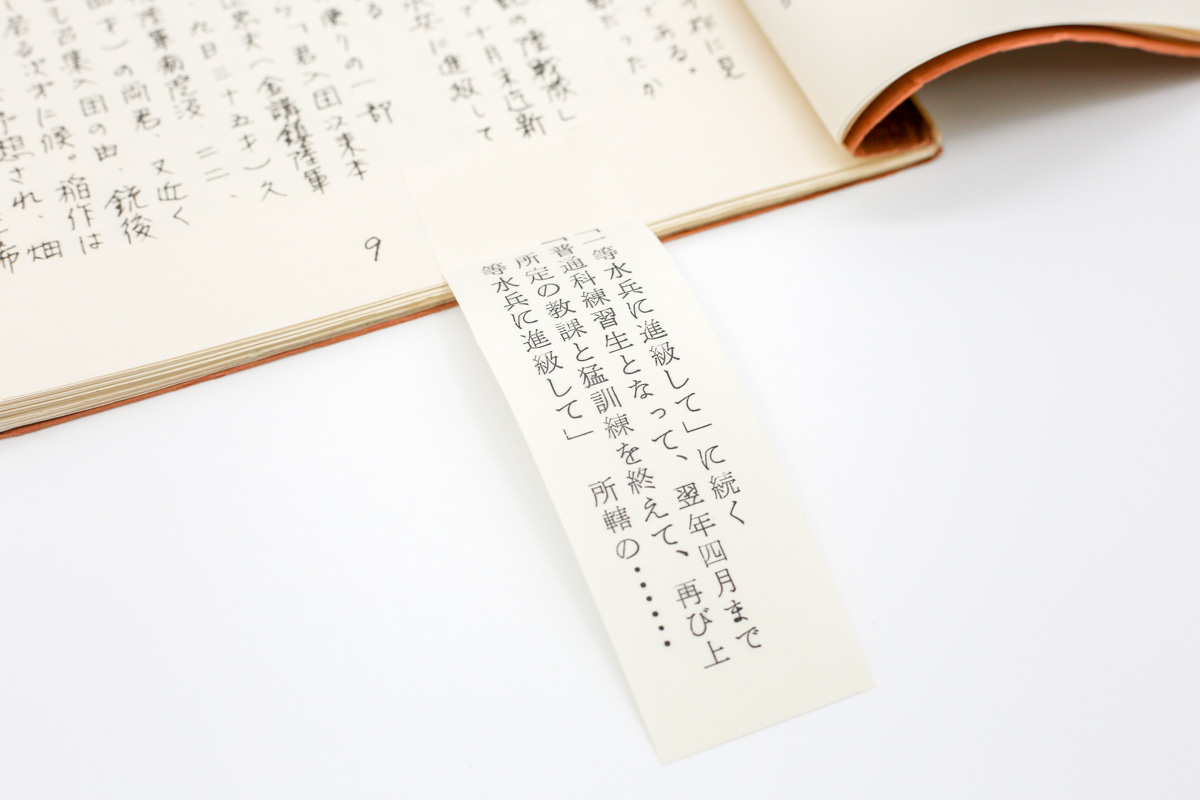 に見
である。
だったか
の陸戦隊」
で十月末近新
水兵に進級して
る
便りの一部
「君入団以来本
夫(金講鎮陸軍
九日三十五才)久
二二、
の両君、又近く
召集入団の由、銃後
居る次才に候。稲作は
予想され、畑
希
9
「一等水兵に進級して」に続く
「普通科練習生となって、翌年四月まで
所定の教課と猛訓練を終えて、再び上
等水兵に進級して」 所轄の・・・・・・・